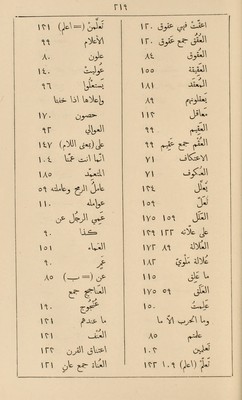 ٢١٩
اعقت فهي عقوق ١٢٠
العُقُق جمع عقوق ١٢٠
العُقوق ٨٤
العقيقة ١٥٥
المُعقَد ١٨١
يعقلونهم ٨٩
معاقل ١١٢
العقيم ٩٩
العُقُم جمع عقيم ٩٩
الاعتكاف ٧١
العُكوف ٧١
يَعلِّل ١٢٤
لعَلّ ١٥٩
العَلَل ١٥٩ ١٧٥
على علّاته ١٢٢ ١٢٩
العُلالة ٨٩ ١٧٢
عُلالة ملويّ ١٨٢
ما عَلِق ١١٥
العَلَق ٥٩ ١٧٥
عَلِمتُ ١٥٠
وما الحرب الّا ما
علمتم ٨٥
تعلمين ١٠٢
تَعلَّمْ (اعلم) ١٠٩ ١٢٣
تَعلَّمَنْ (= اعلم) ١٢١
الأعلام ٩٩
علون ٨٠
عُوليتْ ١٤٠
يستعلوا ٩٦
وإعلاها اذا خفنا
حصون ١٧٠
العوالي ٩٢
على (بمعنى اللام) ١٤٧
انما انت عمّا ١٠٤
المتعمِّد ١٨٥
عامل الرمح وعاملته ٥٩
عوامله ١١٠
عَمِي الرجُل عن
كذا ٩٠
العَماء ١٥١
عَمٍ ٩٠
عن (= ب) ٨٥
العناجيج جمع
عُنجُوج ١٩٠
ما عندهم ١٢١
العُنُف ١٢١
اعتناق القرن ١٢٢
العُناة جمع عانٍ ١٢١